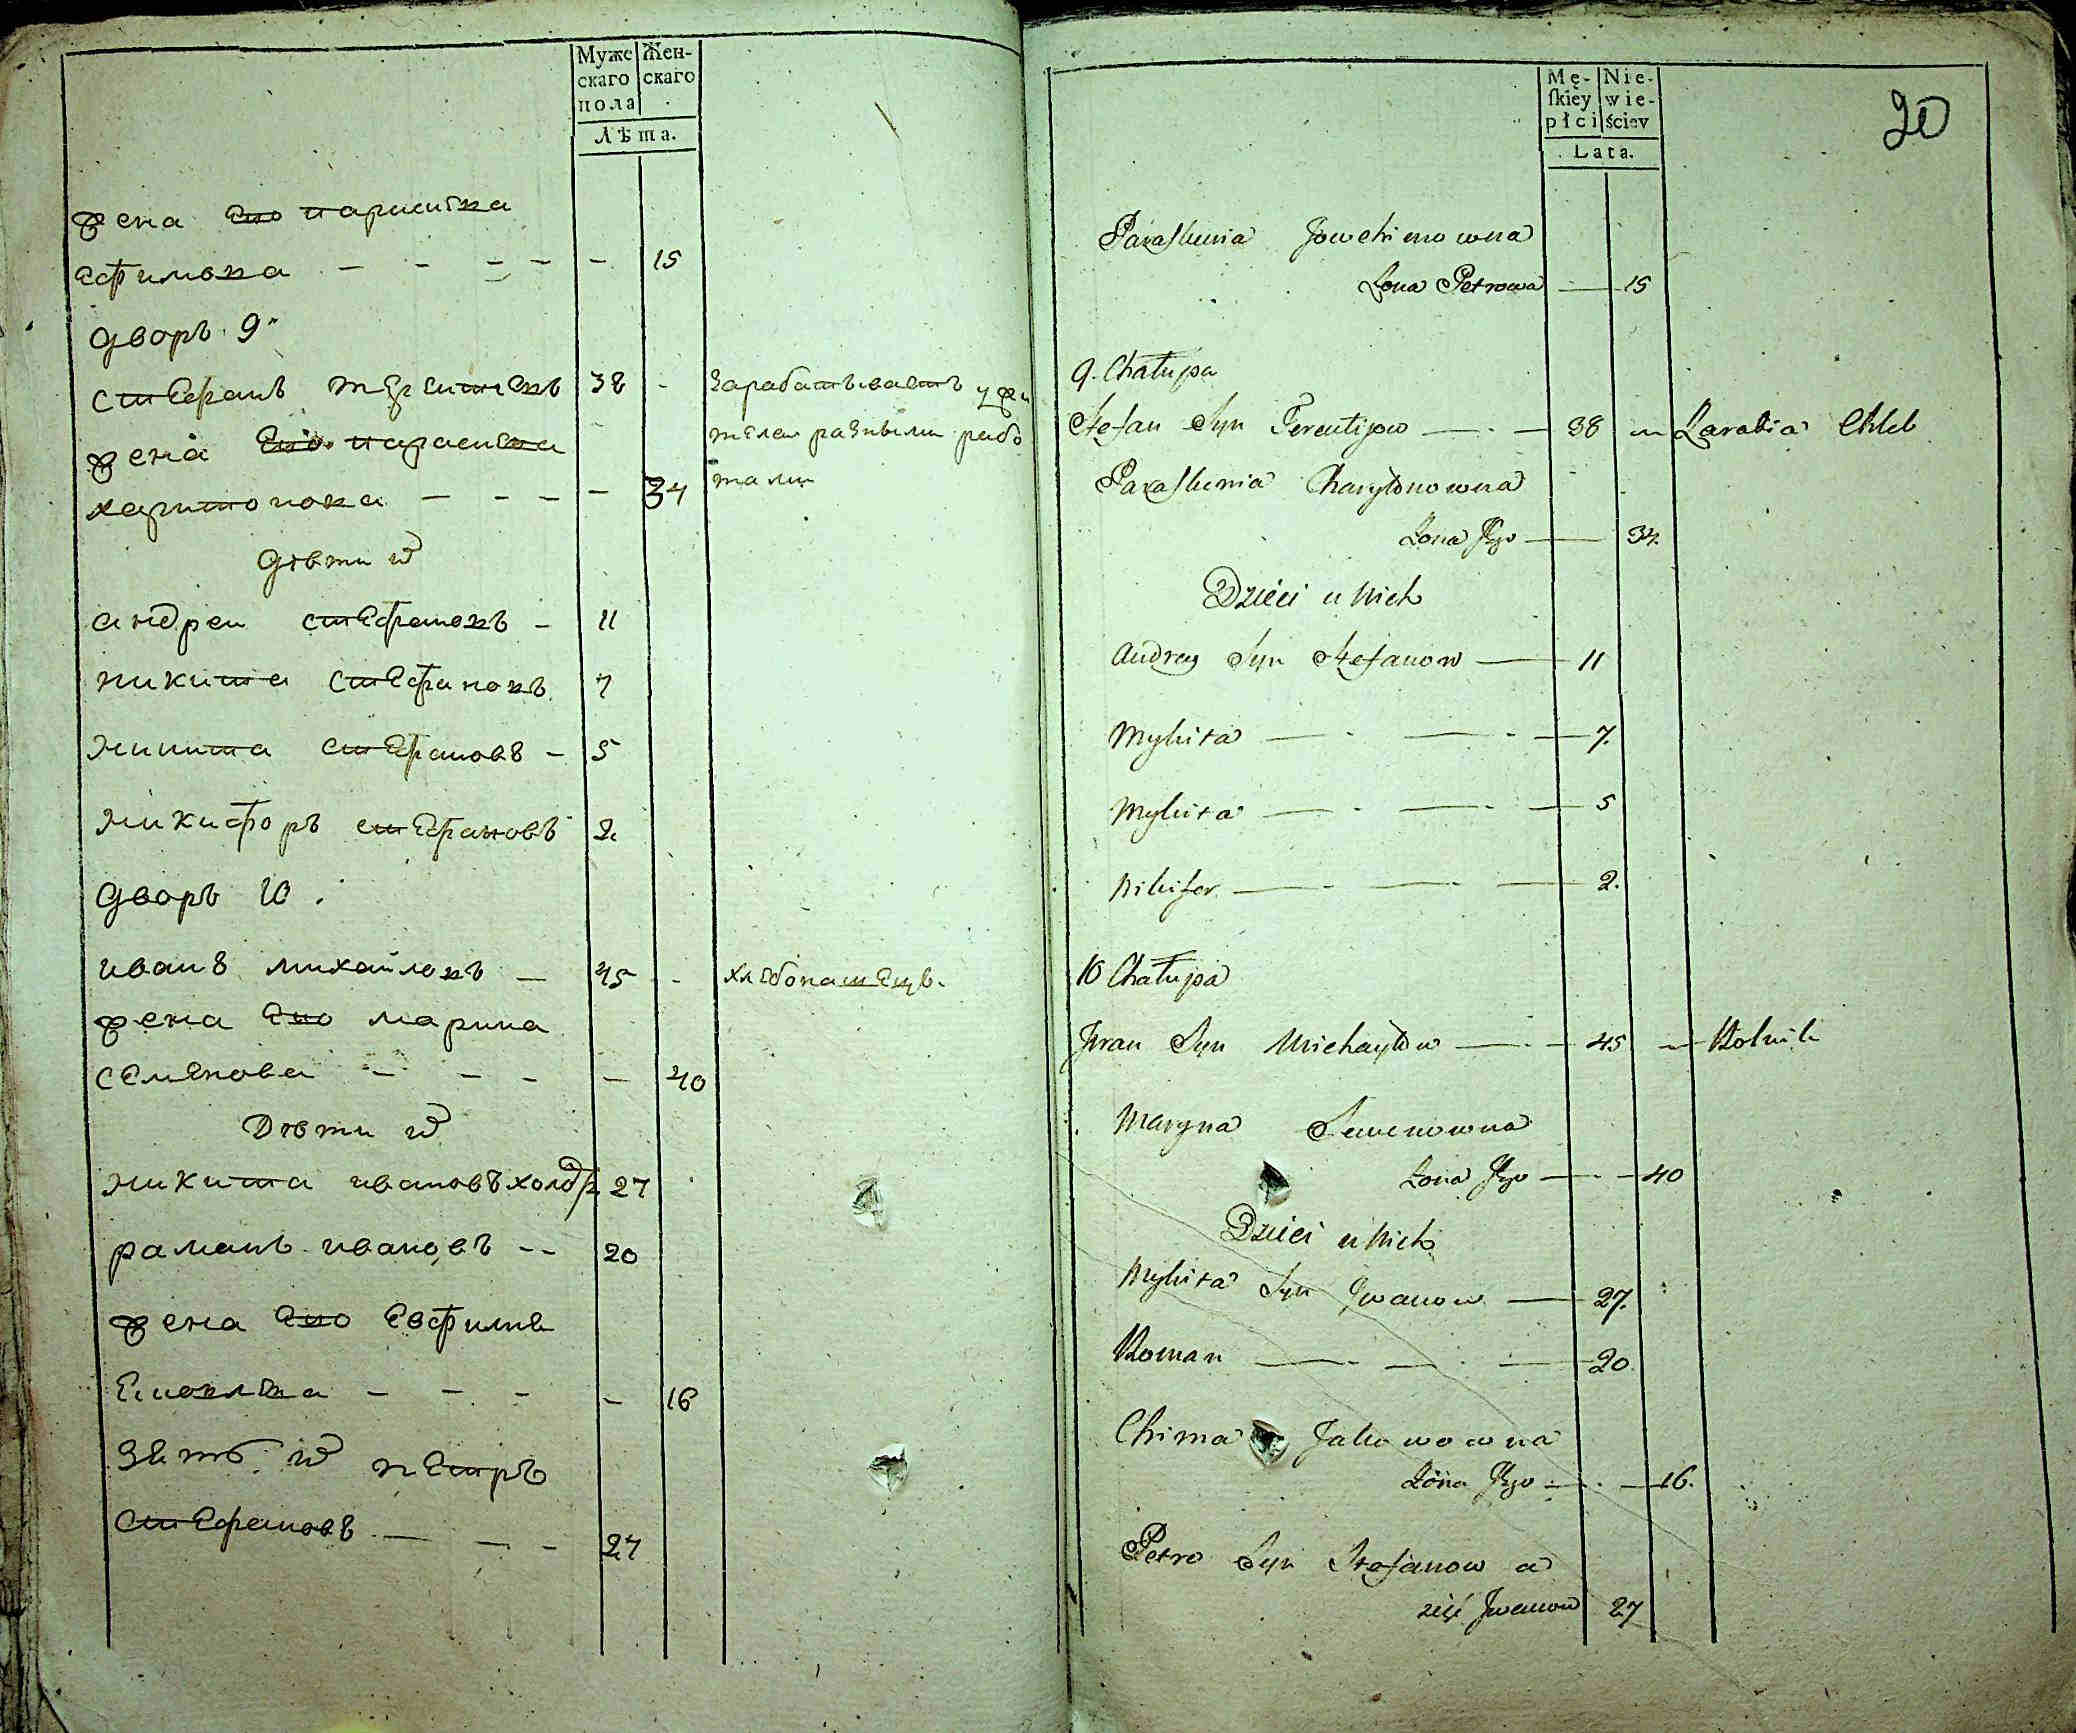 Муже
скаго
пола
Жен-
скаго
Лѣта.
жена ево параскева
ефимова — — — — — 15
дворъ 9"
стефанъ терентиевъ 38 - зарабатываетъ у жи
жена ево параскева телеи разными рабо
харитонова — — — — 34 тами
дѣти их
андреи стефановъ — 11
никита стефановъ 7
микита стефановъ — 5
микифоръ стефановъ 2
дворъ 10.
иванъ михаиловъ — 45 - хлебопашецъ.
жена ево марина
семенова — — — — 40
Дѣти их
микита ивановъ 27
раманъ ивановъ -- 20
жена ево евфимия
— — — — 16
зять их петръ
стефановъ — — — 27
Mę-
ſkiey
płci
Nie-
wie-
ściey
Lata.
20
Paraskewia Jowchimowna
Żona Petrowa — 15
9. Chałupa
Stefan Syn Terentijow — . — 38 — Zarabia Chleb
Paraskewia Charytonowna
Żona Jego — 34.
Dzieci u Nich
Andrey Syn Stefanow — 11
Mykita — . — . — 7.
Mykita — . — . — 5
Nikifor — . — . — 2.
10 Chałupa
Iwan Syn Michayłow — . — 45 — Rolnik
Maryna Semenowna
Żona Jego — . — 40
Dzieci u Nich
Mykita Syn Iwanow — 27.
Roman — . — . — 20.
Chima Jakowowna
Żona Jego — . — 16.
Petro Syn Stefanow a
zięć Iwanow 27